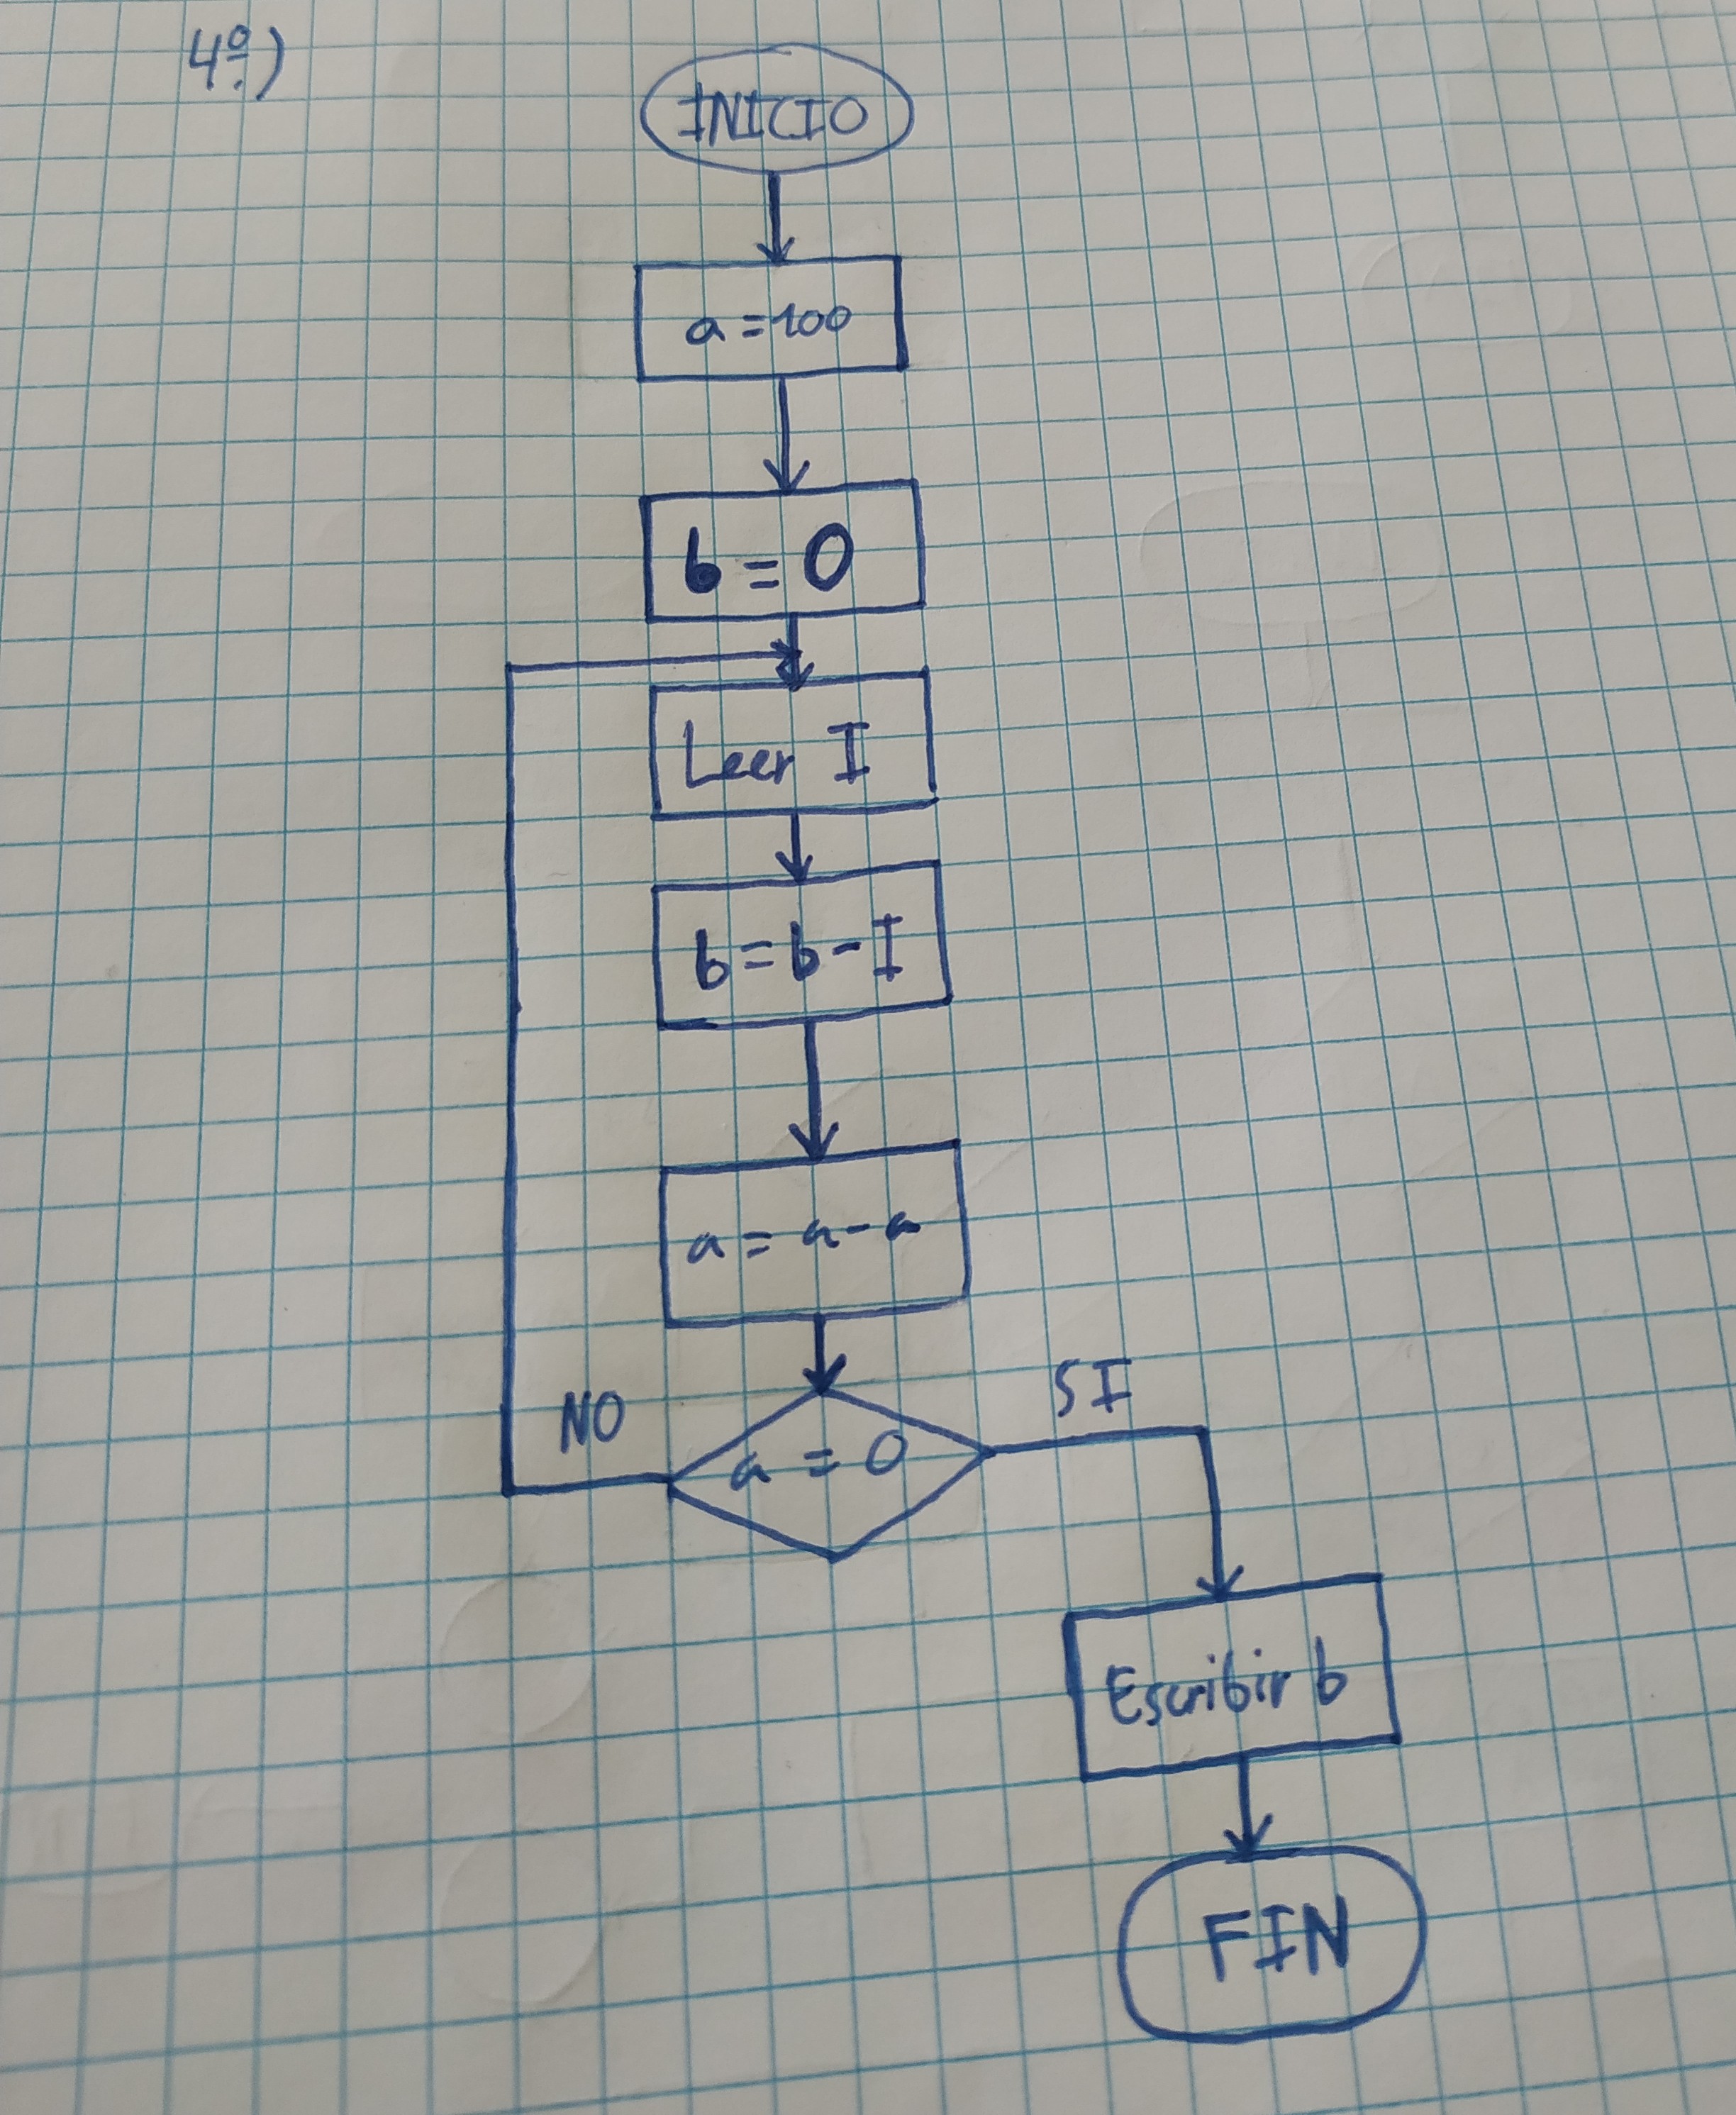 4º)
INICIO
a = 100
b = 0
Leer I
b = b - I
a = a - a
a = 0
NO
SI
Escribir b
FIN